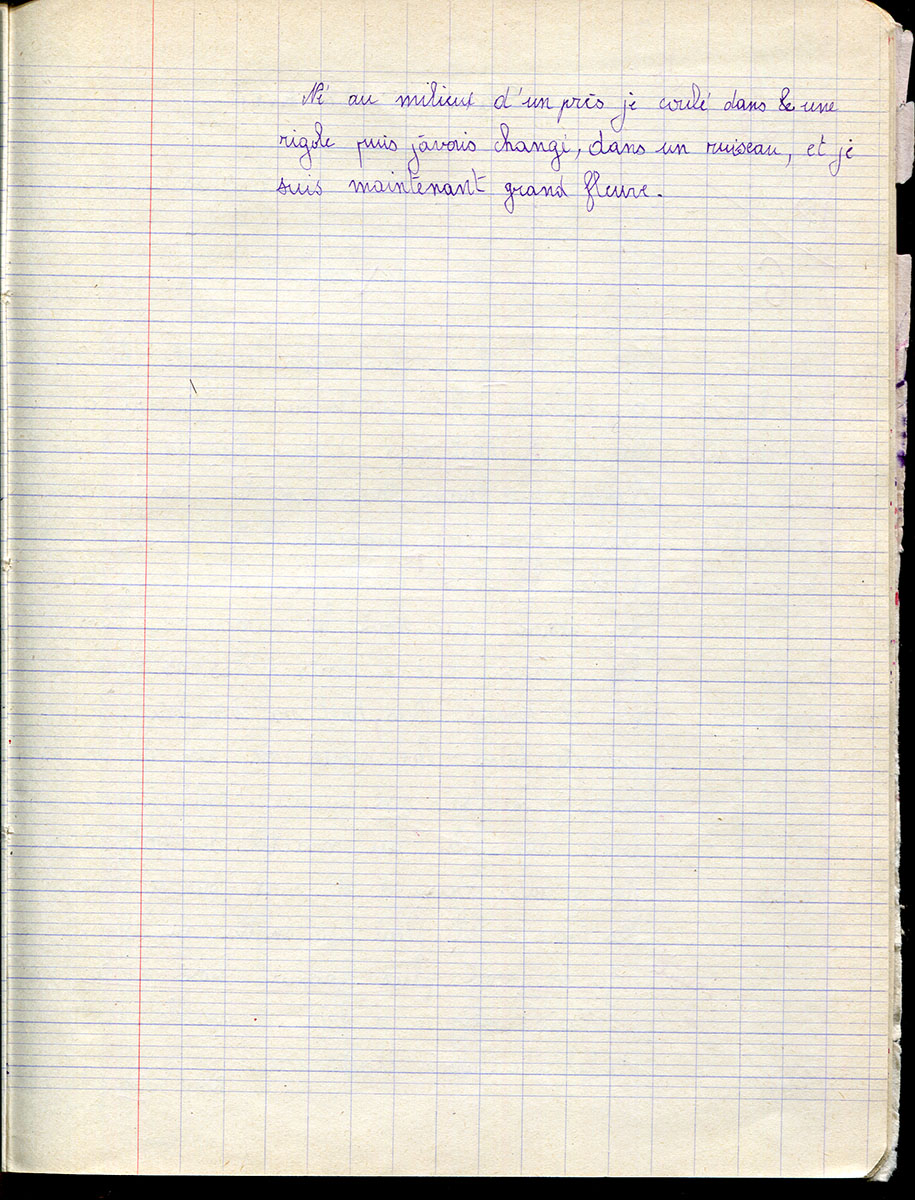 Né au milieux d'un près je coulé dans une
rigole puis j'avais changé, dans un ruiseau, et je
suis maintenant grand fleuve.